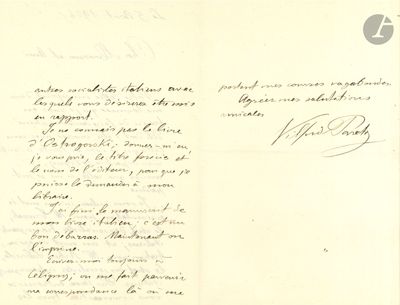 autres socialistes italiens avec
lesquels vous désirerez être mis
en rapport.
Je ne connais pas le livre
d'Ostrogorski; donnez-m'en
je vous prie, le titre précis et
le nom de l'éditeur, pour que je
puisse le demander à mon
libraire.
J'ai fini le manuscrit de
mon livre italien; c'est un
bon débarras. Maintenant on
l'imprime.
Ecrivez-moi toujours à
Céligny; on me fait parvenir
ma correspondance là où me
portent mes courses vagabondes.
Agréez mes salutations
amicales
Vilfredo Pareto